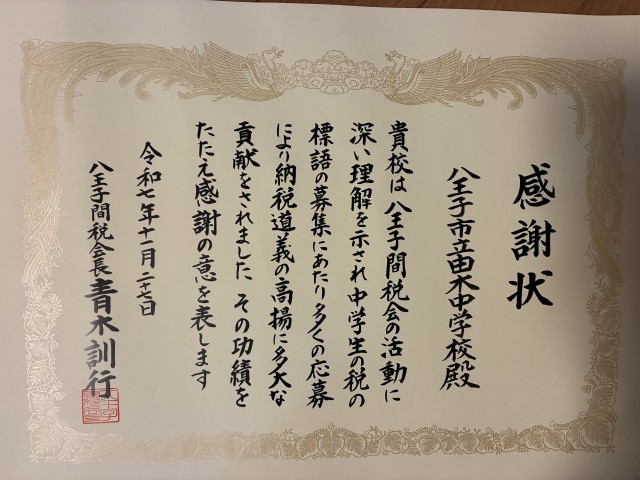 感謝状
八王子市立由木中学校殿
貴校は八王子間税会の活動に
深い理解を示され中学生の税の
標語の募集にあたり多くの応募
により納税道義の高揚に多大な
貢献をされました その功績を
たたえ感謝の意を表します
令和七年十一月二十七日
八王子間税会長 青木訓行